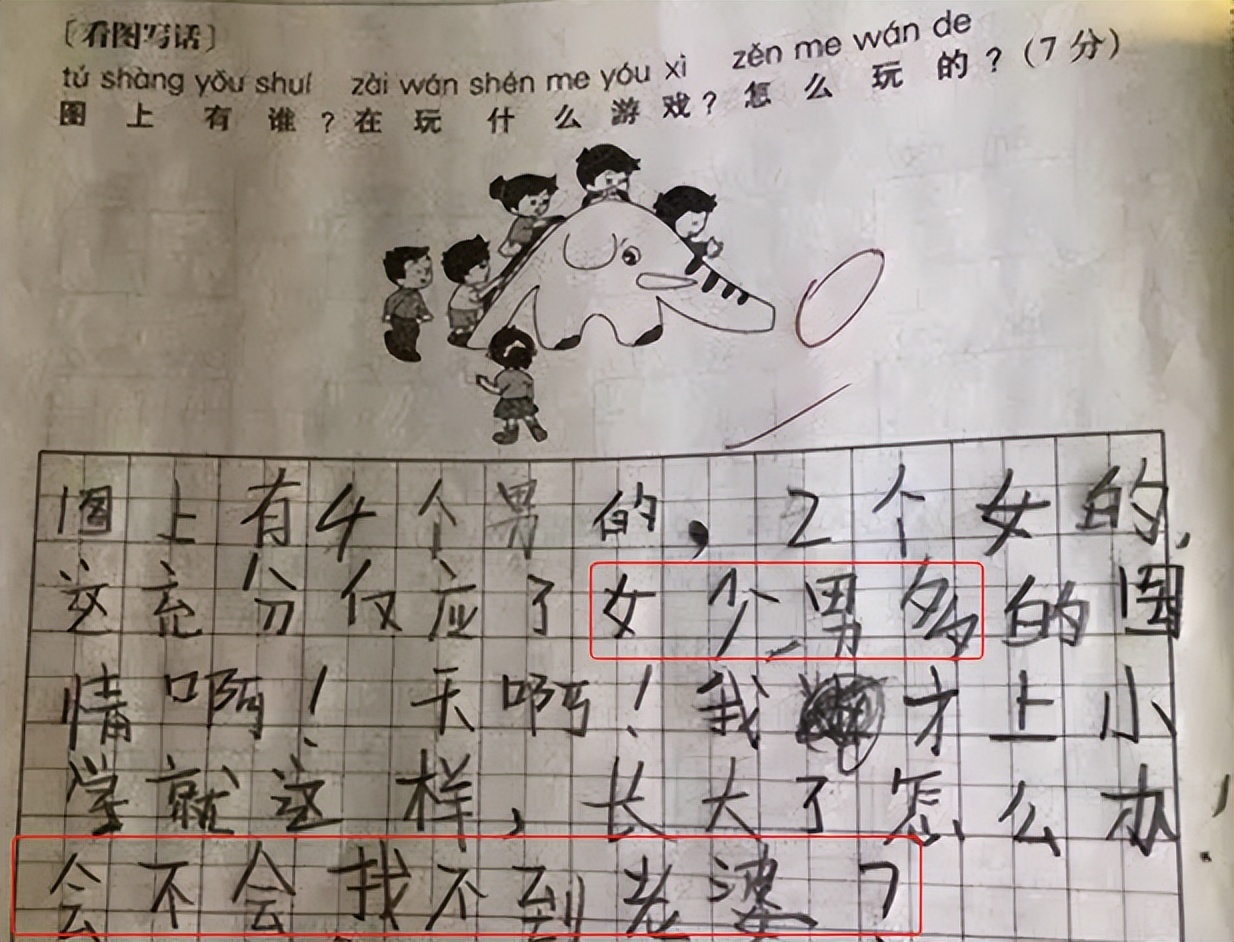 〔看图写话〕
tú shàng yǒu shuí zài wán shén me yóu xì zěn me wán de
图上有谁？在玩什么游戏？怎么玩的？（7分）
图上有4个男的，2个女的，
这充分仅应了女少男多的国
情啊！天啊！我才上小
学就这样，长大了怎么办，
会不会找不到老婆？